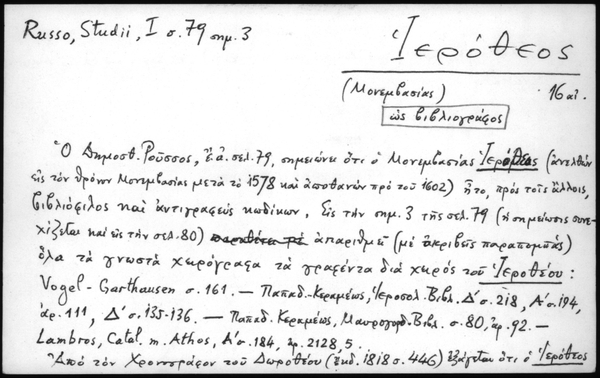 Russo, Studii, I σ. 79 σημ. 3
Ἱερόθεος
(Μονεμβασίας) 16 αἰ.
ὡς βιβλιογράφος
Ὁ Δημοσθ. Ροῦσσος, ἔ.ἀ. σελ. 79, σημειώνει ὅτι ὁ Μονεμβασίας Ἱερόθεος (ἀνελθὼν
εἰς τὸν θρόνον Μονεμβασίας μετὰ τὸ 1578 καὶ ἀποθανὼν πρὸ τοῦ 1602) ἦτο, πρὸς τοῖς ἄλλοις,
βιβλιόφιλος καὶ ἀντιγραφεὺς κωδίκων. Εἰς τὴν σημ. 3 τῆς σελ. 79 (ἡ σημείωσις συνε-
χίζεται καὶ εἰς τὴν σελ. 80) ἀπαριθμεῖ (μὲ ἀκριβεῖς παραπομπὰς)
ὅλα τὰ γνωστὰ χειρόγραφα τὰ γραφέντα διὰ χειρὸς τοῦ Ἱεροθέου:
Vogel-Garthausen σ. 161. — Παπαδ.-Κεραμέως, Ἱεροσολ. Βιβλ. Δ' σ. 218, Α' σ. 194,
ἀρ. 111, Δ' σ. 135-136. — Παπαδ. Κεραμέως, Μαυρογορδ. Βιβλ. σ. 80, ἀρ. 92. —
Lambros, Catal. m. Athos, Α' σ. 184, ἀρ. 2128, 5.
Ἀπὸ τὸν Χρονογράφον τοῦ Δωροθέου (ἔκδ. 1818 σ. 446) ἐξάγεται ὅτι ὁ Ἱερόθεος